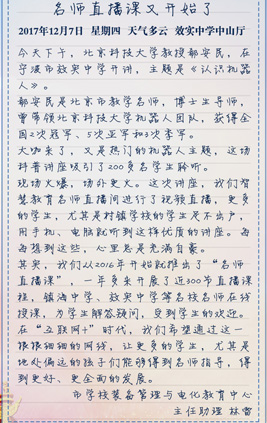 名师直播课又开始了
2017年12月7日 星期四 天气多云 效实中学中山厅
今天下午，北京科技大学教授郗安民，在
宁波市效实中学开讲，主题是《认识机器
人》。
郗安民是北京市教学名师，博士生导师，
曾带领北京科技大学机器人团队，获得全
国2次冠军、5次亚军和3次季军。
大咖来了，又是热门的机器人主题，这场
科普讲座吸引了200多名学生聆听。
现场火爆，场外更火。这次讲座，我们智
慧教育名师直播间进行了视频直播，更多
的学生，尤其是村镇学校的学生足不出户，
用手机、电脑就听到这样优质的讲座。每
每想到这些，心里总是充满自豪。
其实，我们从2016年开始就推出了“名师
直播课”，一年多来开展了近300节直播课
程，镇海中学、效实中学等名校名师在线
授课，为学生解答疑问，受到学生的欢迎。
在“互联网+”时代，我们希望通过这一
根根细细的网线，让更多的学生，尤其是
地处偏远的孩子们能够得到名师指导，得
到更好、更全面的发展。
市学校装备管理与电化教育中心
主任助理 林雷